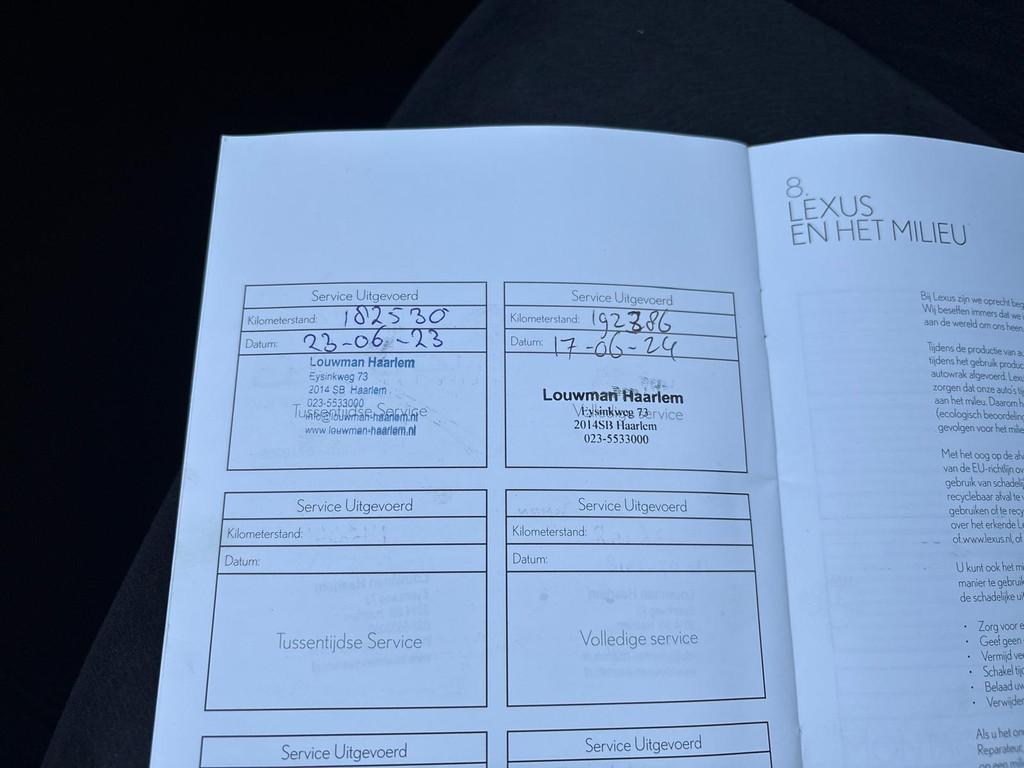 Service Uitgevoerd
Kilometerstand: 182530
Datum: 23-06-23
Louwman Haarlem
Eysinkweg 73
2014 SB Haarlem
023-5533000
Tussentijdse Service
info@louwman-haarlem.nl
www.louwman-haarlem.nl
Service Uitgevoerd
Kilometerstand: 192386
Datum: 17-06-24
Louwman Haarlem
Eysinkweg 73
Volledige service
2014SB Haarlem
023-5533000
Service Uitgevoerd
Kilometerstand:
Datum:
Tussentijdse Service
Service Uitgevoerd
Kilometerstand:
Datum:
Volledige service
Service Uitgevoerd
Service Uitgevoerd
8.
LEXUS
EN HET MILIEU
Bij Lexus zijn we oprecht
Wij beseffen immers dat we
aan de wereld om ons heen
Tijdens de productie van
tijdens het gebruik
autowrak afgevoerd.
zorgen dat onze auto's
aan het milieu. Daarom
(ecologisch
gevolgen voor het
Met het oog op de
van de EU-richtlijn
gebruik van
recyclebaar afval te
gebruiken of te
over het erkende
of www.lexus.nl, of
U kunt ook het
manier te
de schadelijke
• Zorg voor
• Geef geen
• Vermijd
• Schakel
• Belaad uw
•
Als u het
Reparateur,
op een